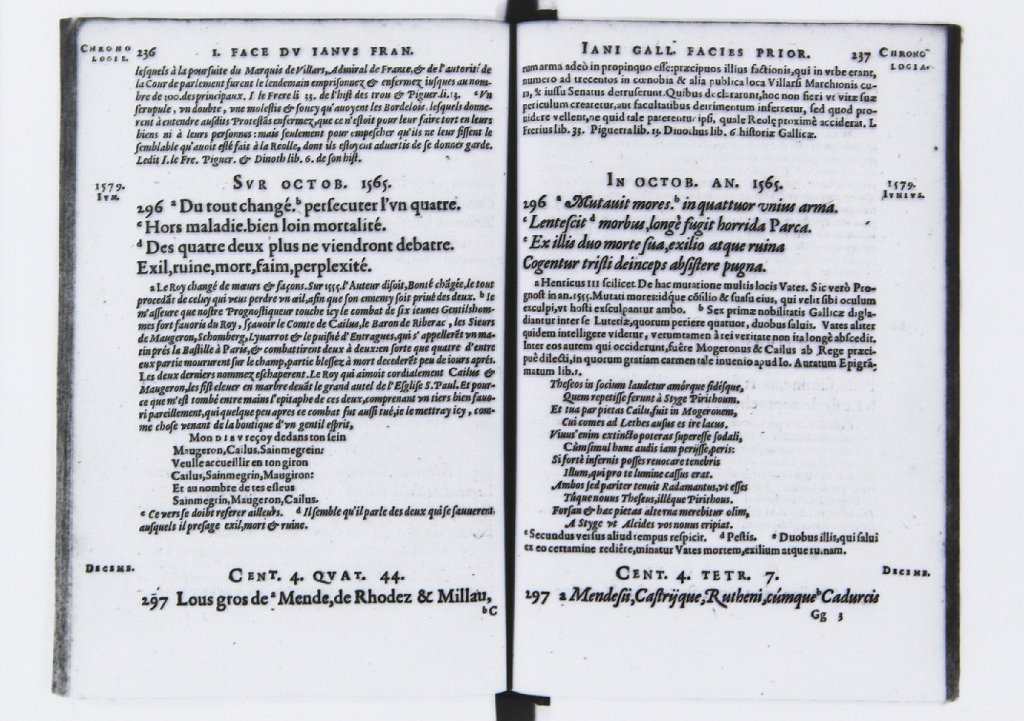 CHRONO
LOGIE.
236 I. FACE DV IANVS FRAN.
lesquels à la poursuite du Marquis de Villars, Admiral de France, & de l'autorité de
la Cour de parlement furent le lendemain emprisonnez & enfermez iusques au nom-
bre de 300. des principaux. I. le Frere li. 33. de l'hist des trou & Piguer. li. 13. ᵉ Vn
scrupule, vn doubte, vne moleste & soucy qu'auoyent les Bordelois. lesquels donne-
rent à entendre ausdits Protestãs enfermez, que ce n'estoit pour leur faire tort en leurs
biens ni à leurs personnes: mais seulement pour empescher qu'ils ne leur fissent le
semblable qu'auoit esté fait à la Reolle, dont ils estoyent aduertis de se donner garde.
Ledit I. le Fre. Piguer. & Dinoth lib. 6. de son hist.
1579.
IVN.
SVR OCTOB. 1565.
296 ᵃ Du tout changé. ᵇ persecuter l'vn quatre.
ᶜ Hors maladie. bien loin mortalité.
ᵈ Des quatre deux plus ne viendront debatre.
Exil, ruine, mort, faim, perplexité.
a Le Roy changé de mœurs & façons. Sur 1555. l'Auteur disoit, Bonté chãgée, le tout
procedãt de celuy qui veut perdre vn œil, afin que son ennemy soit priué des deux. ᵇ Ie
m'asseure que nostre Prognostiqueur touche icy le combat de six ieunes Gentilshom-
mes fort fauoris du Roy, sçauoir le Comte de Cailus, le Baron de Riberac, les Sieurs
de Maugeron, Schomberg, Lyuarrot & le puisné d'Entragues, qui s'appellerẽt vn ma-
tin prés la Bastille à Paris, & combatirent deux à deux: en sorte que quatre d'entre
eux partie moururent sur le champ, partie blessez à mort decederẽt peu de iours aprés.
Les deux derniers nommez eschaperent. Le Roy qui aimoit cordialement Cailus &
Maugeron, les fist eleuer en marbre deuãt le grand autel de l'Esglise S. Paul. Et pour-
ce que m'est tombé entre mains l'epitaphe de ces deux, comprenant vn tiers bien fauo-
ri pareillement, qui quelque peu apres ce combat fut aussi tué, ie le mettray icy, com-
me chose venant de la boutique d'vn gentil esprit,
Mon DIEV reçoy dedans ton sein
Maugeron, Cailus, Sainmegrein:
Veulle accueillir en ton giron
Cailus, Sainmegrin, Maugiron:
Et au nombre de tes esleus
Sainmegrin, Maugeron, Cailus.
ᶜ Ce vers se doibt referer ailleurs. ᵈ Il semble qu'il parle des deux qui se sauuerent
ausquels il presage exil, mort & ruine.
DECEMB.
CENT. 4. QVAT. 44.
297 Lous gros de ᵃ Mende, de Rhodez & Millau,
ᵇ C
IANI GALL. FACIES PRIOR. 237
CHRONO
LOGIA.
rum arma adeò in propinquo esse: præcipuos illius factionis, qui in vrbe erant,
numero ad trecentos in cœnobia & alia publica loca Villarsi Marchionis cu-
ra, & iussu Senatus detruserunt. Quibus declararunt, hoc non fieri vt vitæ suæ
periculum crearetur, aut facultatibus detrimentum inferretur, sed quod pro-
uidere vellent, ne quid tale paterentur ipsi, quale Reolę proximè acciderat. I.
Frerius lib. 33. Piguerra lib. 13. Dinothus lib. 6 historiæ Gallicæ.
1579.
IVNIVS.
IN OCTOB. AN. 1565.
296 ᵃ Mutauit mores. ᵇ in quattuor vnius arma.
ᶜ Lentescit ᵈ morbus, longè fugit horrida Parca.
ᵉ Ex illis duo morte sua, exilio atque ruina
Cogentur tristi deinceps absistere pugna.
a Henricus III scilicet. De hac mutatione multis locis Vates. Sic verò Pro-
gnost in an. 1555. Mutati mores: idque cõsilio & suasu eius, qui velit sibi oculum
exculpi, vt hosti exsculpantur ambo. ᵇ Sex primæ nobilitatis Gallicæ digla-
diantur inter se Lutetiæ, quorum periere quatuor, duobus saluis. Vates aliter
quidem intelligere videtur, verumtamen à rei veritate non ita longè abscedit.
Inter eos autem qui occiderunt, fuêre Mogeronus & Cailus ab Rege præci-
puè dilecti, in quorum gratiam carmen tale inuenio apud Io. Auratum Epigrã-
matum lib. 1.
Theseos in socium laudetur amórque fidésque,
Quem repetisse ferunt à Styge Pirithoum.
Et tua par pietas Cailu, fuit in Mogeronem,
Cui comes ad Lethes ausus es ire lacus.
Viuus enim extincto poteras superesse sodali,
Cùm simul hunc audis iam perijsse, peris:
Si fortè infernis posses reuocare tenebris
Illum, qui pro te lumine cassus erat.
Ambos sed pariter tenuit Radamantus, vt esses
Túque nouus Theseus, illéque Pirithous.
Forsan & hæc pietas alterna merebitur olim,
A Styge vt Alcides vos nouus eripiat.
ᶜ Secundus versus aliud tempus respicit. ᵈ Pestis. ᵉ Duobus illis, qui salui
ex eo certamine rediêre, minatur Vates mortem, exilium atque ruinam.
DECEMB.
CENT. 4. TETR. 7.
297 a Mendesii, Castrijque, Rutheni, cúmque ᵇ Cadurcis
Gg 3